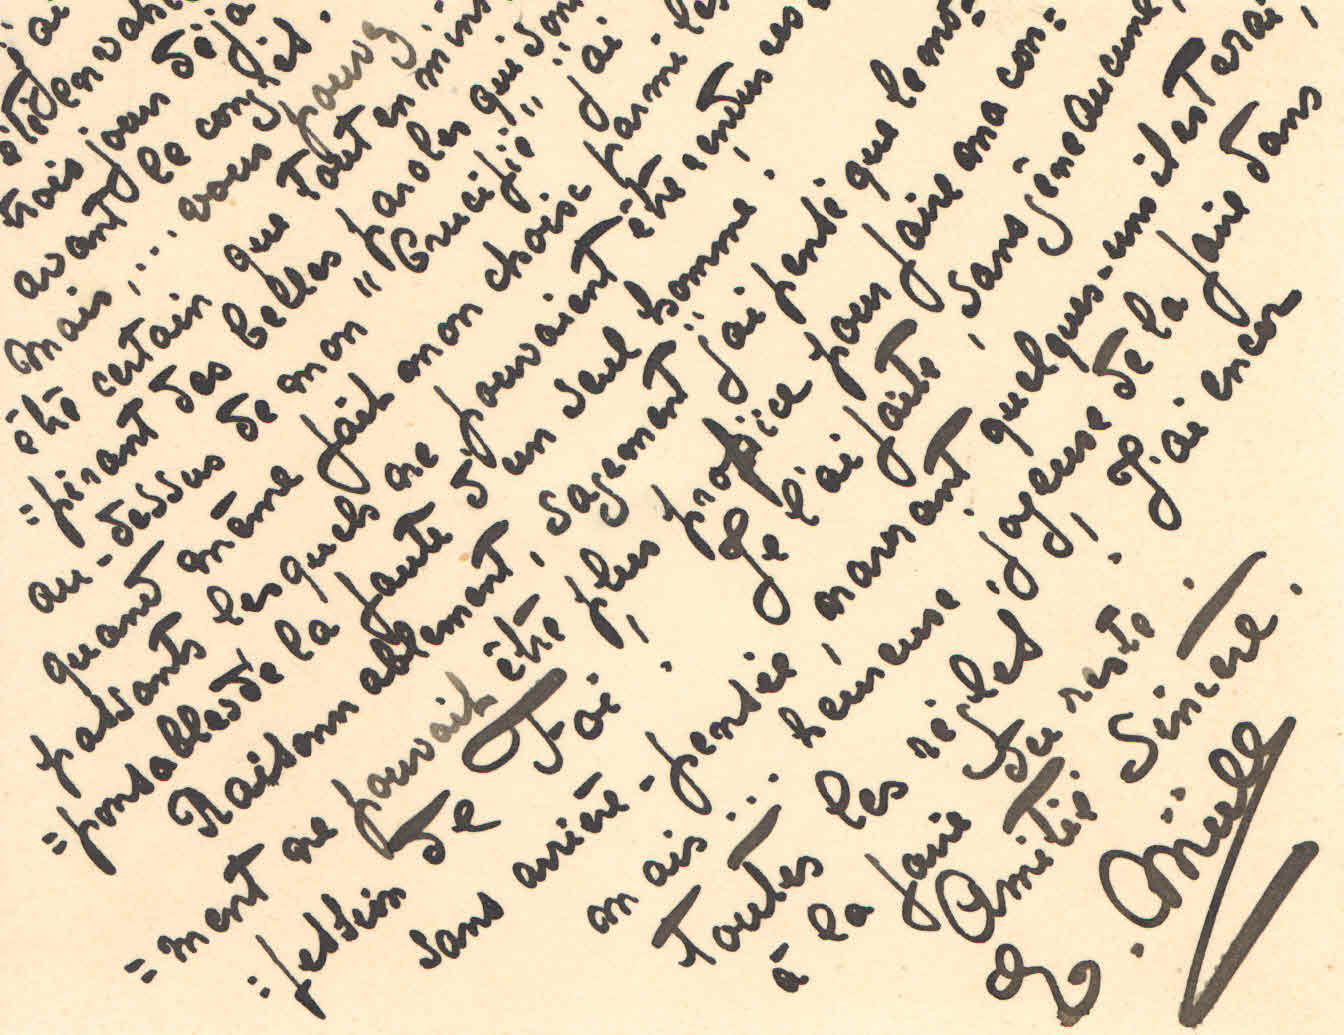 j'ai
trois jours déjà
avant le congés.
mais,... vous pouvez
être certain que tout en m'ins
=pirant des belles paroles qui sont
au-dessus de mon "Crucifié" j'ai
quand même fait mon choix parmi les
passants lesquels ne pouvaient être rendus res=
=ponsables de la faute d'un seul homme.
Raisonnablement, sagement j'ai pensé que le mo=
=ment ne pouvait être plus propice pour faire ma con=
=fession de Foi! Je l'ai faite, sans gêne aucune,
sans arrière-pensée, navrant quelques-uns il est vrai,
mais... heureuse, joyeuse de la faire dans
toutes les règles! J'ai encor
à la faire du reste.
Amitié Sincère.